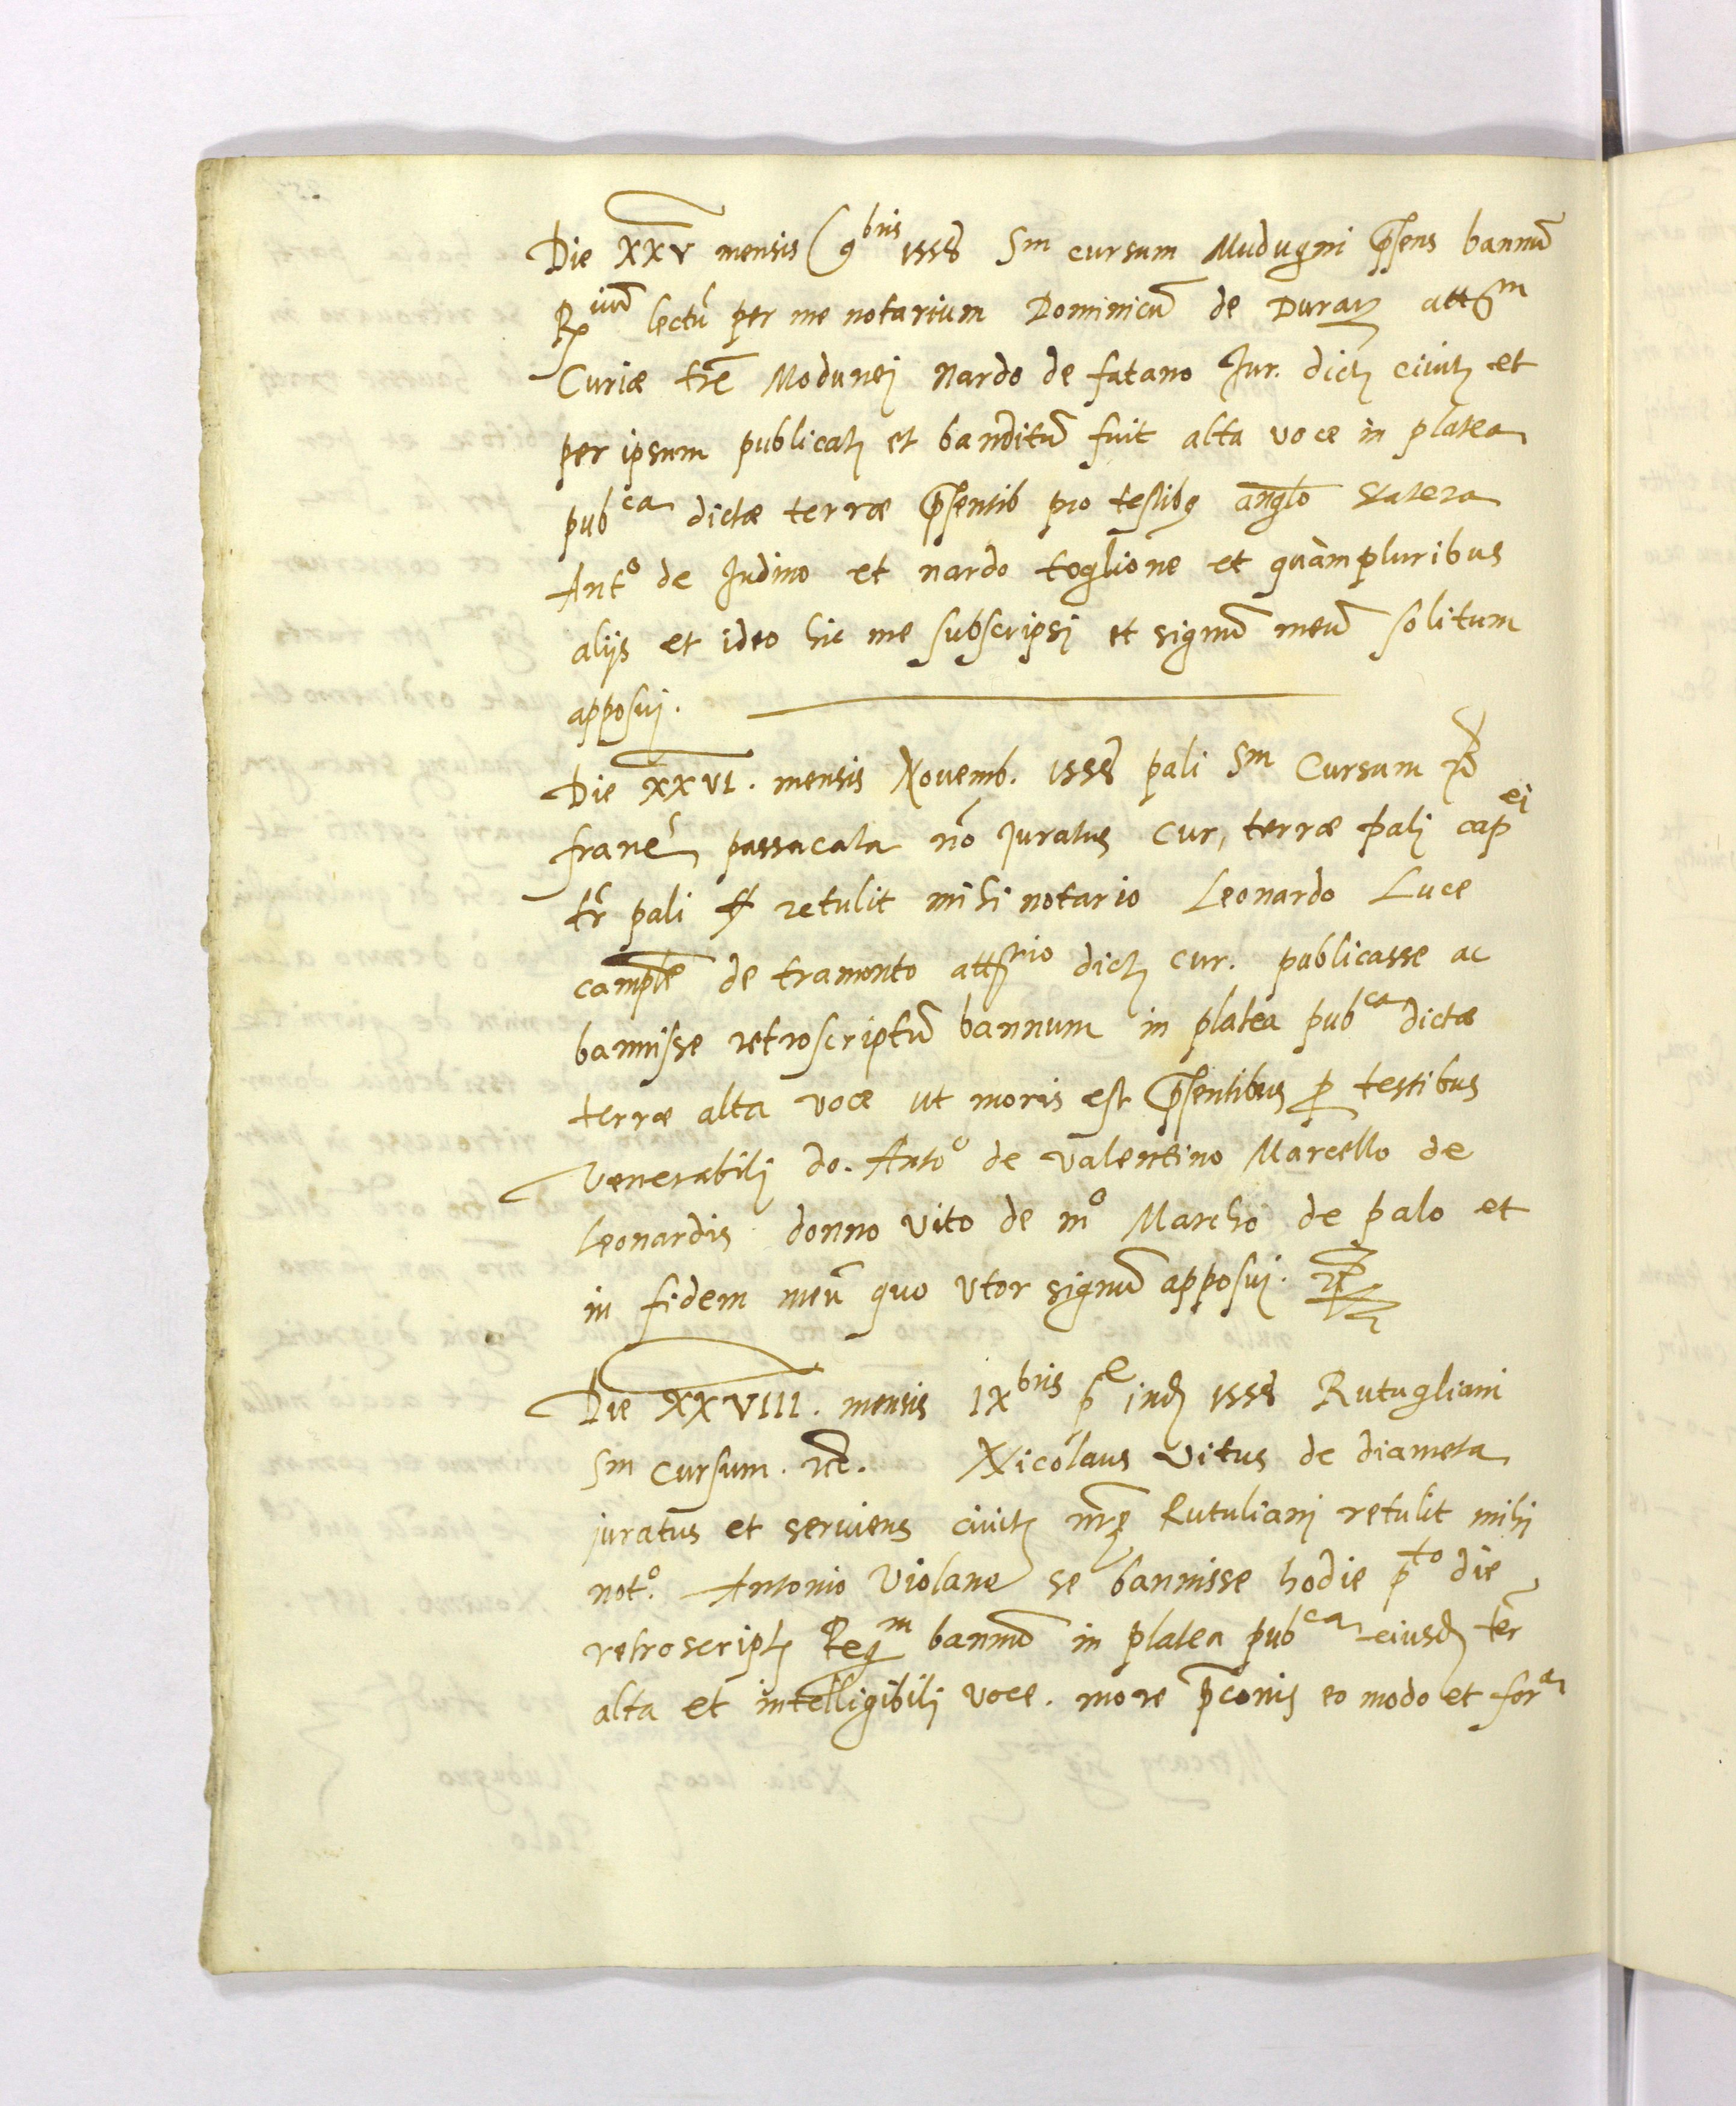 Die XXV mensis 9bris 1558 Sm cursum Mudugni pñsens bannũ
Rium lectũ per me notarium Dominicũ de Duraz attm
Curiæ tre Modunej Nardo de fatano Jur. dict civit et
per ipsum publicat et banditũ fuit alta voce in platea
pubca dictæ terræ pñsentib pro testibq anglo statera
Anto de Judino et nardo toglione et quàmpluribus
alijs et ideo hic me subscripsj et signũ meũ solitum
apposuj.
Die XXVI. mensis Novemb. 1558 pali Sm Cursum
franc passacala no juratus cur, terræ palj capei
tr pali retulit mihi notario Leonardo Luce
camplE de tramonto attrio dict cur. publicasse ac
bannisse retroscriptũ bannum in platea pubca dictæ
terræ alta voce ut moris est pñsentibus p testibus
Venerabilj do. Anto de valentino Marcello de
Leonardis donno vito de mo Marcho de palo et
in fidem meũ quo utor signũ apposuj.
Die XXVIII. mensis IXbris pe ind 1558 Rutugliani
Sm cursum. etc. Nicolaus Vitus de diameta
juratus et serviens civit nrp Rutulianj retulit mihi
noto. Antonio Violane se bannisse hodie pto die
retroscript Regm bannũ in platea pubca eiusd ter
alta et intelligibilj voce. more pconis eo modo et fora